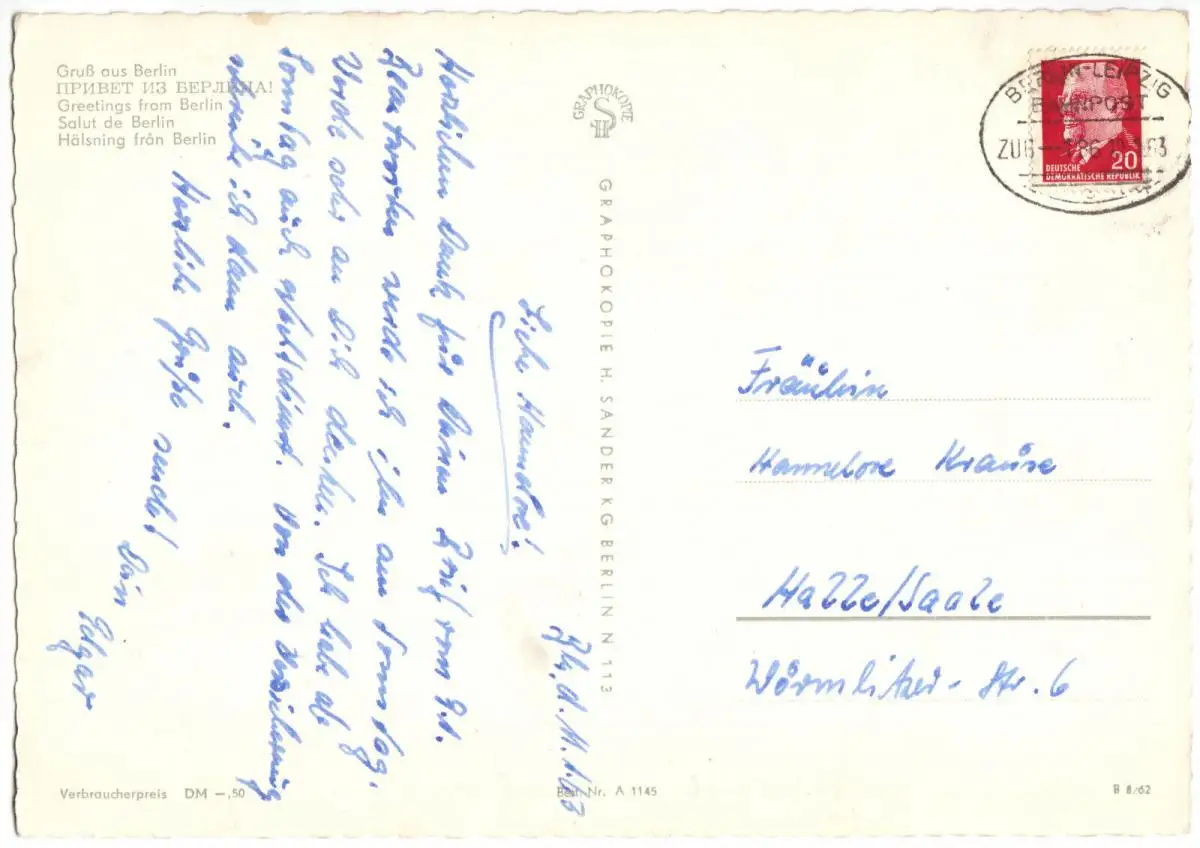 Gruß aus Berlin
ПРИВЕТ ИЗ БЕРЛИНА!
Greetings from Berlin
Salut de Berlin
Hälsning från Berlin
GRAPHOKOPIE
H S
GRAPHOKOPIE H. SANDER KG BERLIN N 113
BERLIN-LEIPZIG
BAHNPOST
ZUG
63
20
DEUTSCHE
DEMOKRATISCHE REPUBLIK
Bln, d. 11.1.63
Liebe Hannelore!
Herzlichen Dank für Deinen Brief vom 9.1.
Beantworten werde ich ihn am Sonntag.
Werde oder an Dich denken. Ich habe ab
Sonntag auch Von der Versicherung
ich dann auch.
Herzliche Grüße sendet
Dein
Edgar
Fräulein
Hannelore Krause
Halle/Saale
Wörmlitzer-Str. 6
Verbraucherpreis DM —,50
Best.-Nr. A 1145
B 8/62